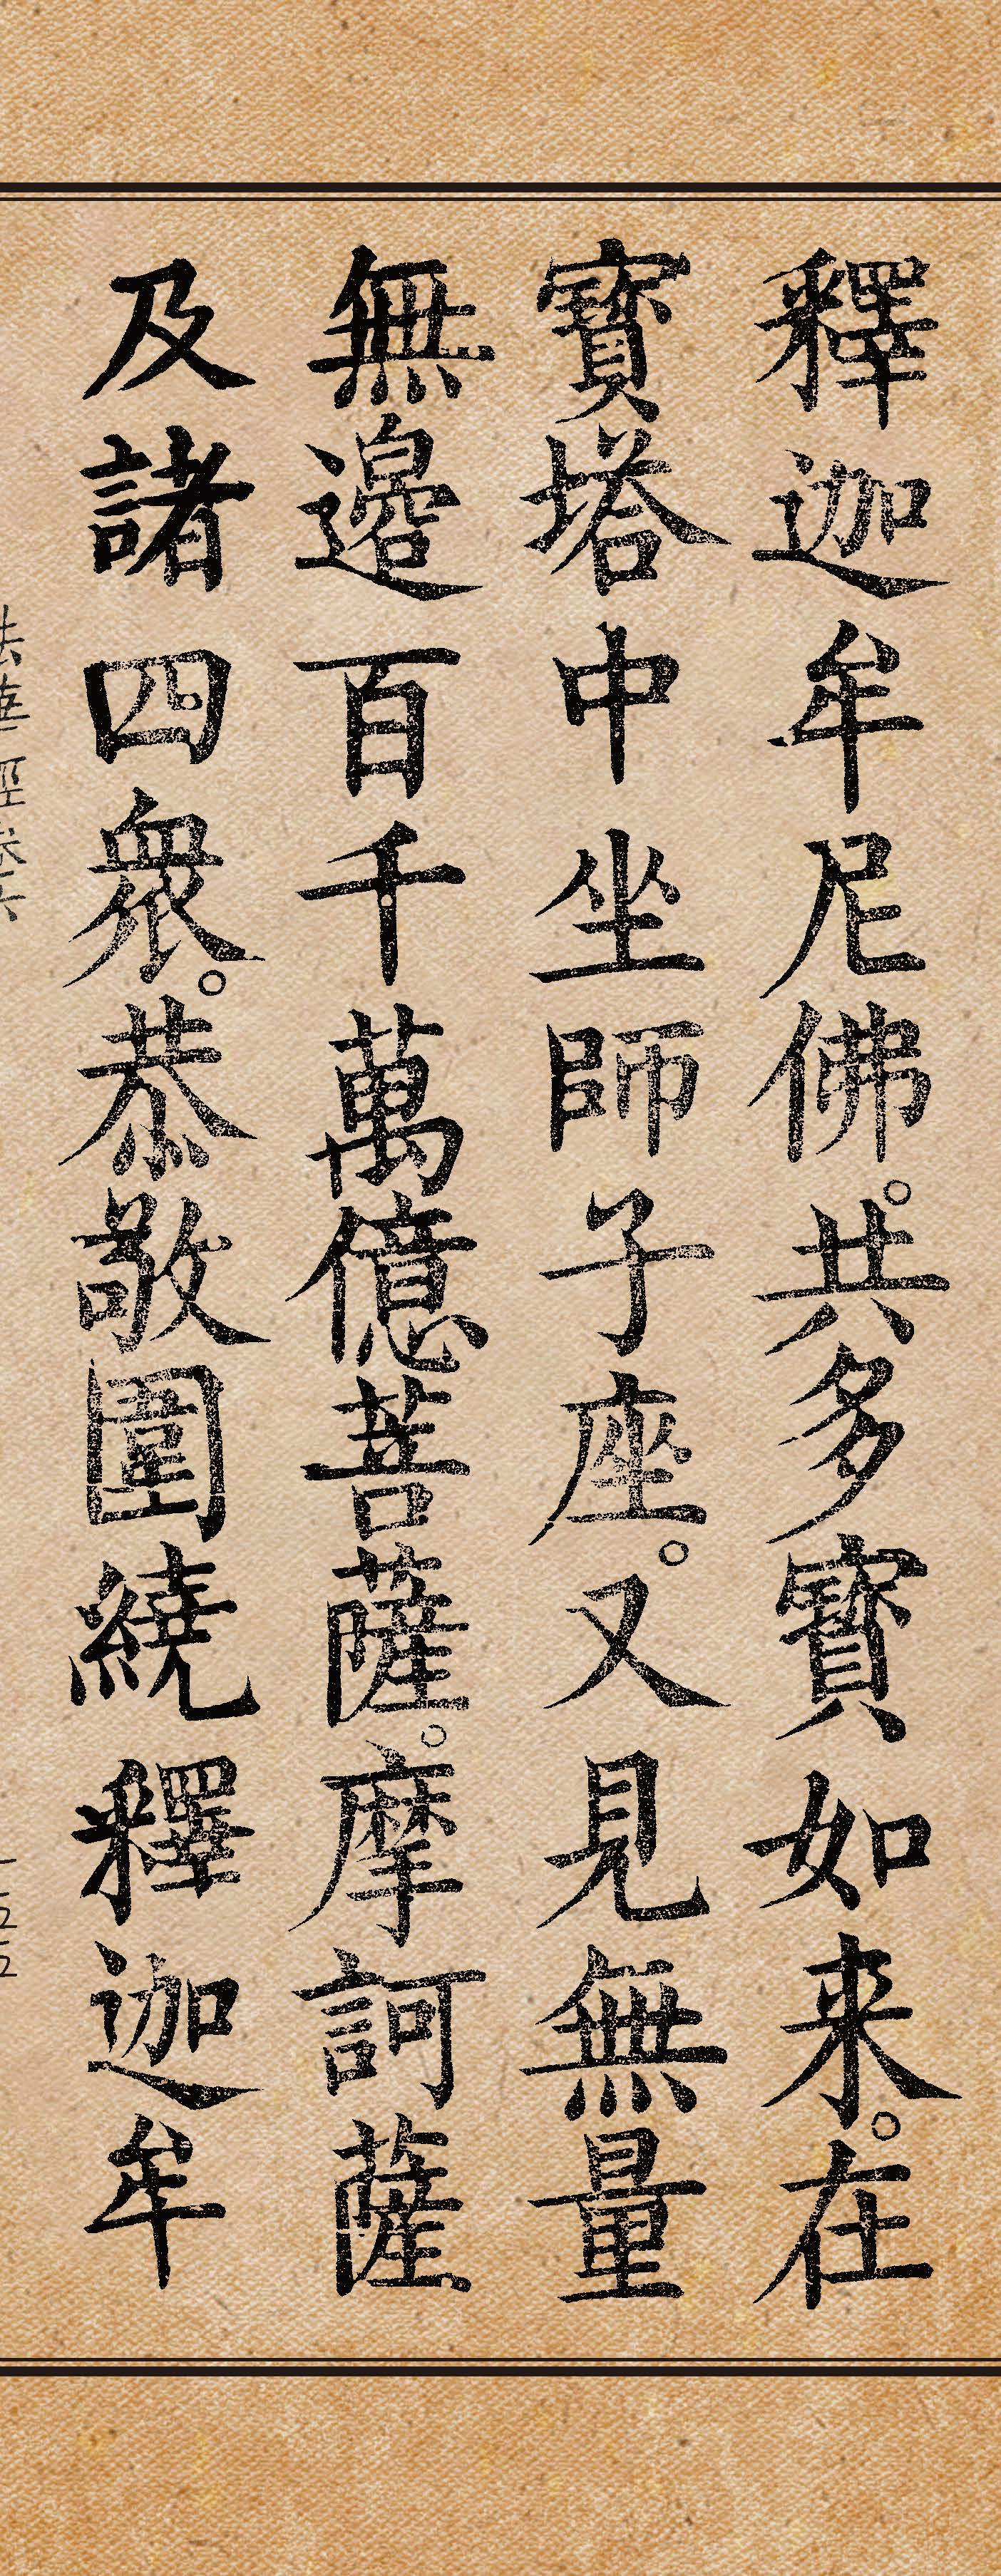 釋迦牟尼佛。共多寶如来。在
寶塔中坐師子座。又見無量
無邊百千萬億菩薩。摩訶薩
及諸四衆。恭敬圍繞釋迦牟
法華經卷六
一五五